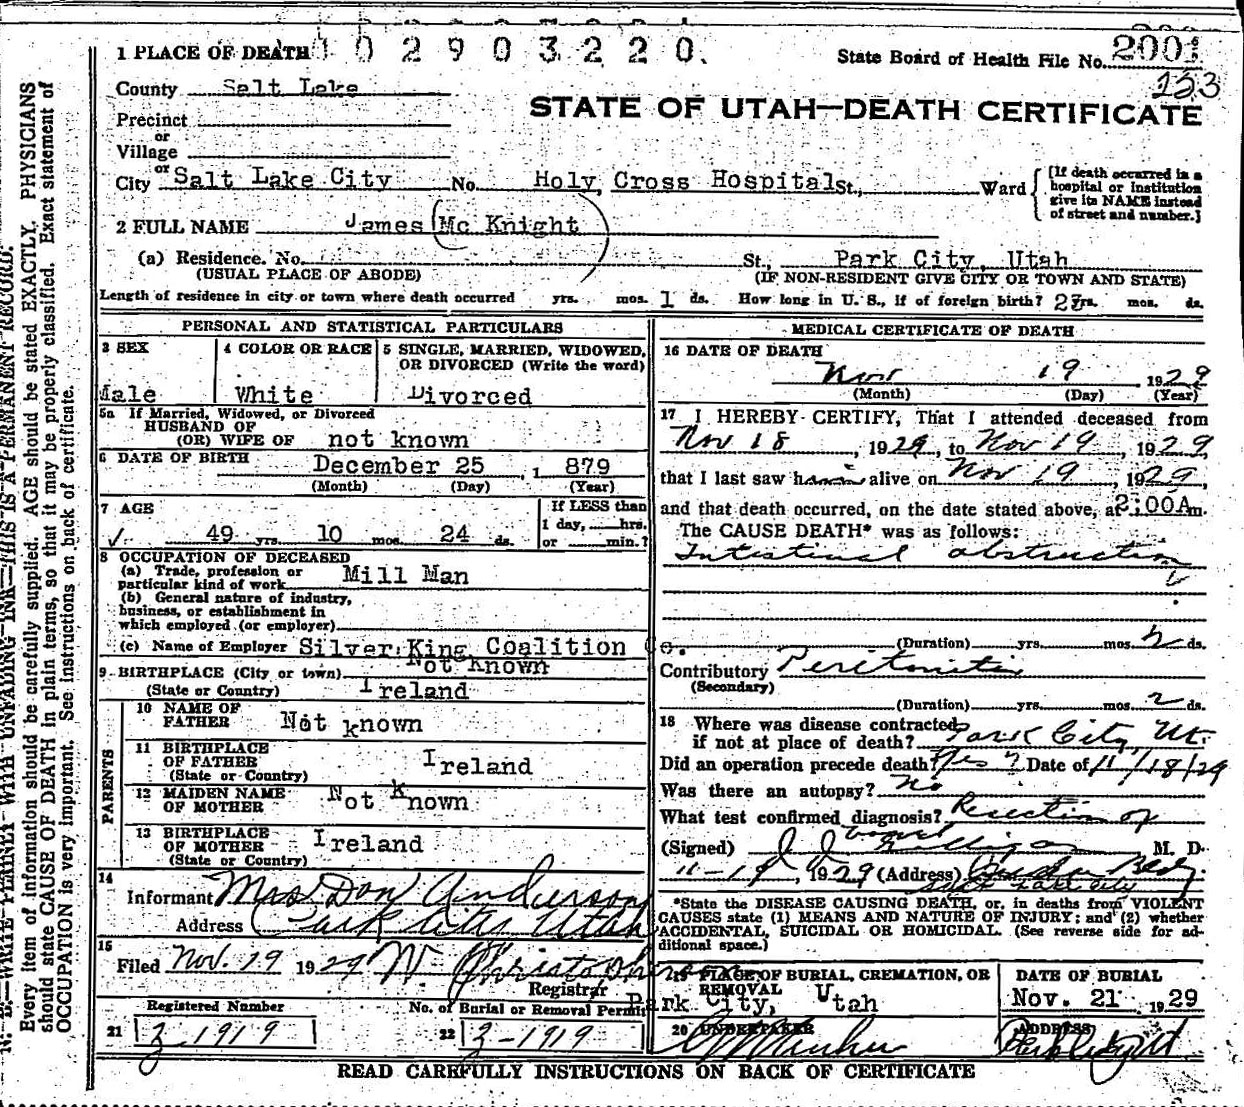 1 PLACE OF DEATH 1 0 2 9 0 3 2 2 0.
State Board of Health File No. 2001
153
County Salt Lake
STATE OF UTAH—DEATH CERTIFICATE
Precinct
or
Village
or
City Salt Lake City No. Holy Cross Hospital St., Ward
[If death occurred in a hospital or institution give its NAME instead of street and number.]
2 FULL NAME James (Mc Knight)
(a) Residence. No. St., Park City, Utah
(USUAL PLACE OF ABODE) (IF NON-RESIDENT GIVE CITY OR TOWN AND STATE)
Length of residence in city or town where death occurred yrs. mos. 1 ds. How long in U. S., if of foreign birth? yrs. mos. ds.
PERSONAL AND STATISTICAL PARTICULARS
3 SEX
Male
4 COLOR OR RACE
White
5 SINGLE, MARRIED, WIDOWED,
OR DIVORCED (Write the word)
Divorced
5a If Married, Widowed, or Divorced
HUSBAND OF
(OR) WIFE OF not known
6 DATE OF BIRTH December 25 1 879
(Month) (Day) (Year)
7 AGE
49 yrs. 10 mos. 24 ds.
If LESS than
1 day, hrs.
or min.?
8 OCCUPATION OF DECEASED
(a) Trade, profession or
particular kind of work Mill Man
(b) General nature of industry,
business, or establishment in
which employed (or employer)
(c) Name of Employer Silver King Coalition Co.
9 BIRTHPLACE (City or town) Not Known
(State or Country) Ireland
PARENTS
10 NAME OF
FATHER Not known
11 BIRTHPLACE
OF FATHER Ireland
(State or Country)
12 MAIDEN NAME
OF MOTHER Not known
13 BIRTHPLACE
OF MOTHER Ireland
(State or Country)
14
Informant Mrs Don Anderson
Address Park City Utah
15
Filed Nov. 19 1929 W. Christopherson
Registrar
Registered Number
21 Z 1919
No. of Burial or Removal Permit
22 Z-1919
MEDICAL CERTIFICATE OF DEATH
16 DATE OF DEATH
Nov 19 1929
(Month) (Day) (Year)
17 I HEREBY CERTIFY, That I attended deceased from
Nov 18, 1929, to Nov 19, 1929,
that I last saw him alive on Nov 19, 1929,
and that death occurred, on the date stated above, at 2:00A m.
The CAUSE DEATH* was as follows:
Intestinal obstruction
(Duration) yrs. mos. 2 ds.
Contributory Peritonitis
(Secondary)
(Duration) yrs. mos. 2 ds.
18 Where was disease contracted
if not at place of death? Park City, Ut.
Did an operation precede death? Yes Date of 11/18/29
Was there an autopsy? No
What test confirmed diagnosis? Resection of
bowel
(Signed) M. D.
11-19, 1929 (Address)
Salt Lake City
*State the DISEASE CAUSING DEATH, or, in deaths from VIOLENT
CAUSES state (1) MEANS AND NATURE OF INJURY; and (2) whether
ACCIDENTAL, SUICIDAL OR HOMICIDAL. (See reverse side for ad-
ditional space.)
19 PLACE OF BURIAL, CREMATION, OR
REMOVAL
Park City, Utah
DATE OF BURIAL
Nov. 21 1929
20 UNDERTAKER
ADDRESS
Park City Ut
READ CAREFULLY INSTRUCTIONS ON BACK OF CERTIFICATE
N. B.—WRITE PLAINLY WITH UNFADING INK—THIS IS A PERMANENT RECORD.
Every item of information should be carefully supplied. AGE should be stated EXACTLY. PHYSICIANS
should state CAUSE OF DEATH in plain terms, so that it may be properly classified. Exact statement of
OCCUPATION is very important. See instructions on back of certificate.